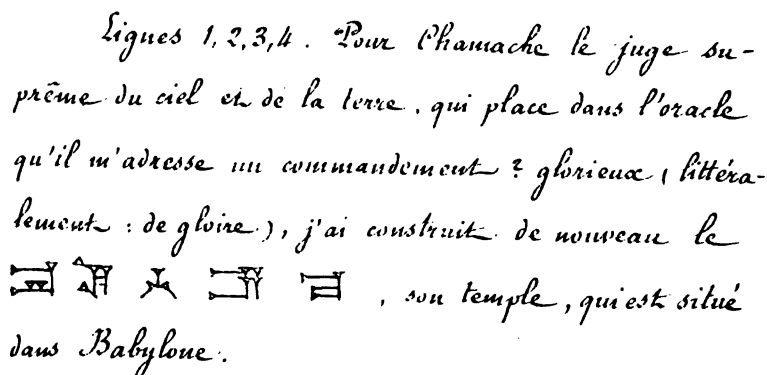 Lignes 1, 2, 3, 4. Pour Chamache le juge su-
prême du ciel et de la terre, qui place dans l'oracle
qu'il m'adresse un commandement ? glorieux (littéra-
lement : de gloire), j'ai construit de nouveau le
𒂍 𒁲 𒋻 𒌦 𒈠, son temple, qui est situé
dans Babylone.